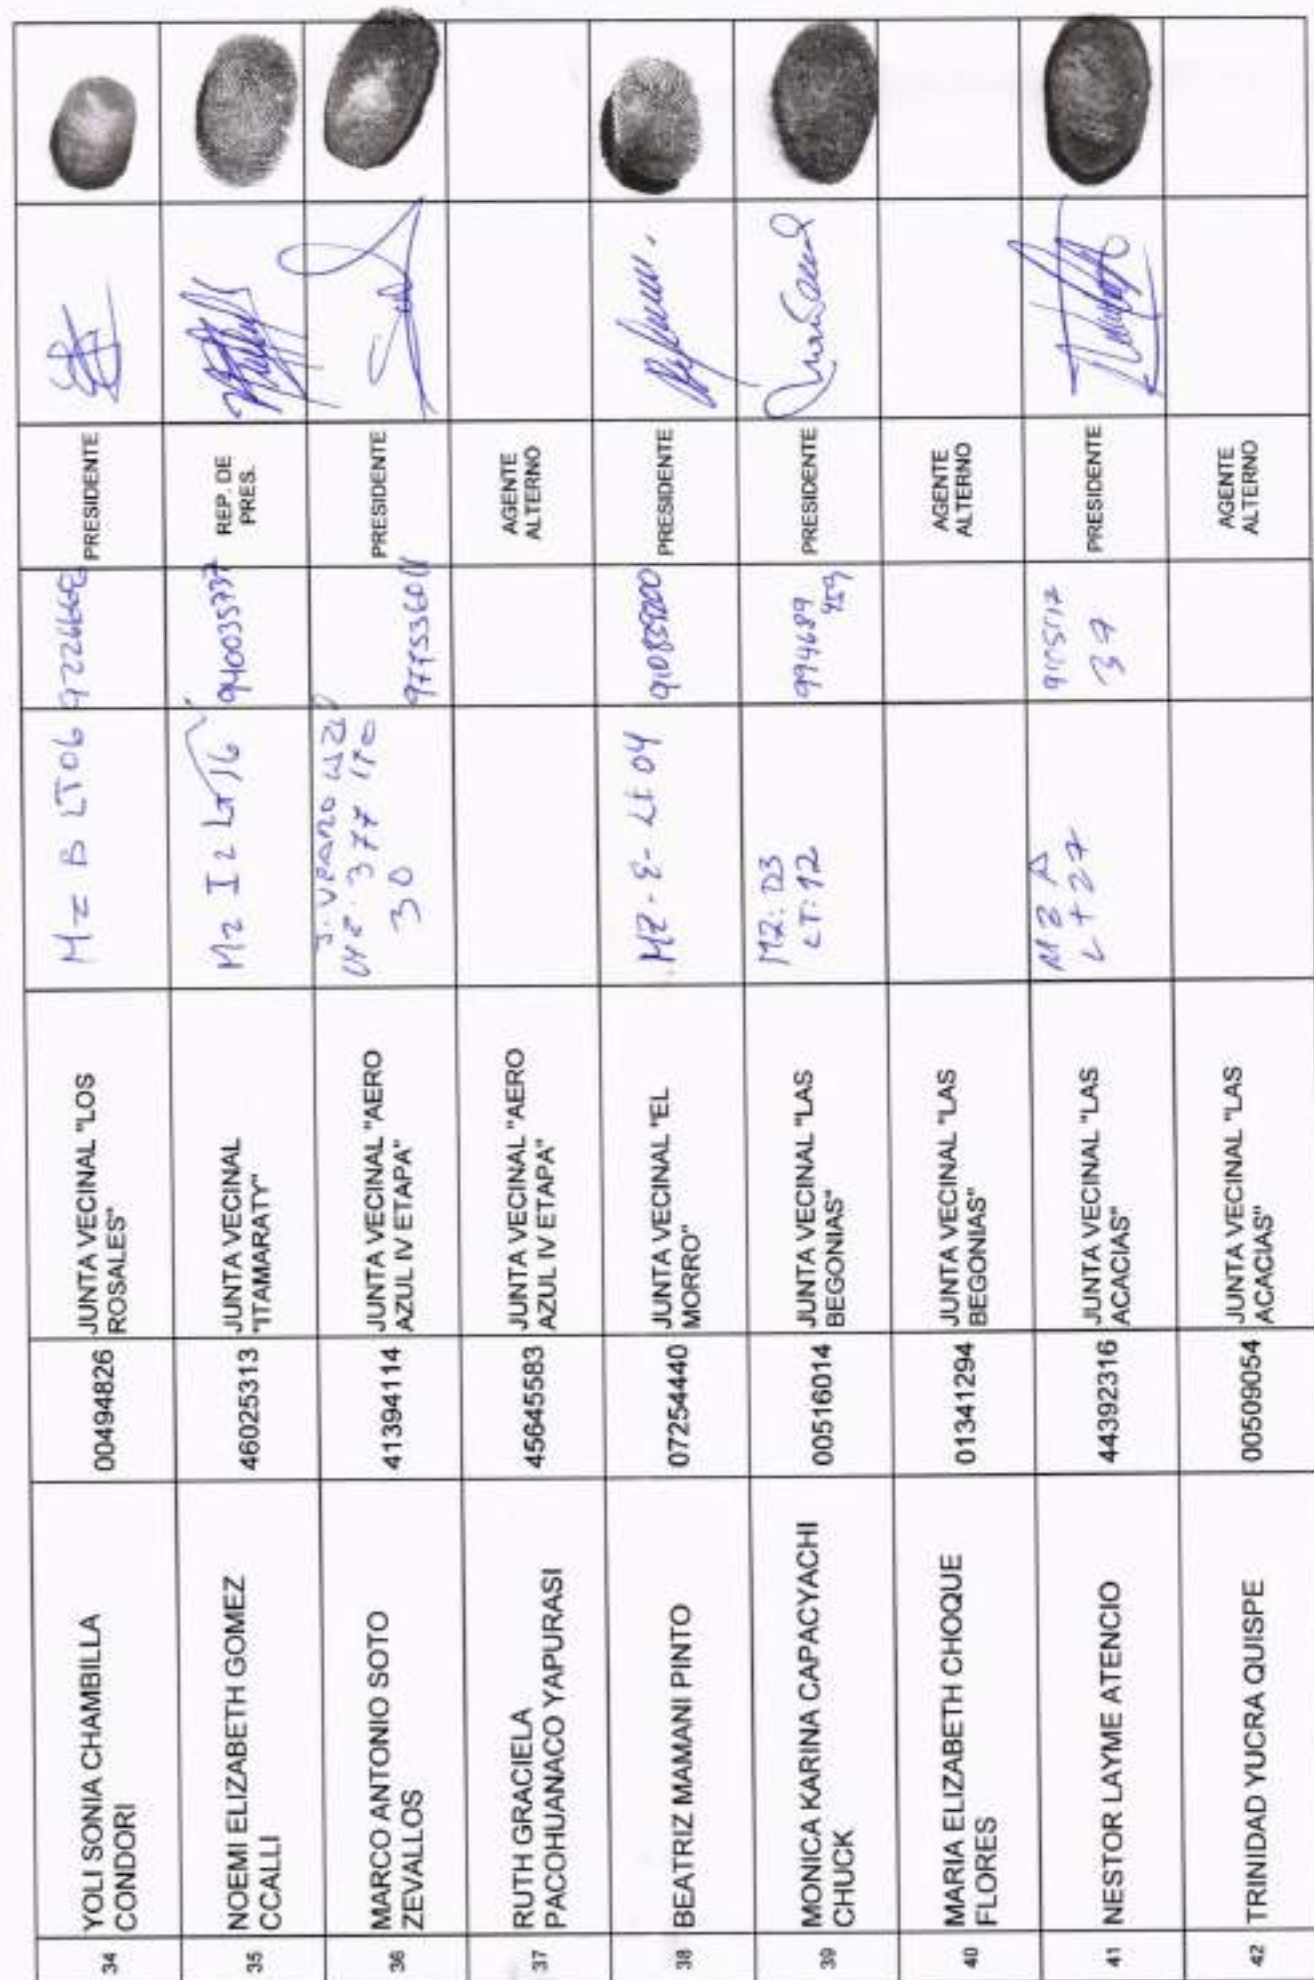 34
YOLI SONIA CHAMBILLA
CONDORI
00494826
JUNTA VECINAL "LOS
ROSALES"
Mz B LT06
PRESIDENTE
35
NOEMI ELIZABETH GOMEZ
CCALLI
46025313
JUNTA VECINAL
"ITAMARATY"
Mz I2 LT 16
940035737
REP. DE
PRES.
36
MARCO ANTONIO SOTO
ZEVALLOS
41394114
JUNTA VECINAL "AERO
AZUL IV ETAPA"
377
30
PRESIDENTE
37
RUTH GRACIELA
PACOHUANACO YAPURASI
45645583
JUNTA VECINAL "AERO
AZUL IV ETAPA"
AGENTE
ALTERNO
38
BEATRIZ MAMANI PINTO
07254440
JUNTA VECINAL "EL
MORRO"
MZ - E - Lt 04
PRESIDENTE
39
MONICA KARINA CAPACYACHI
CHUCK
00516014
JUNTA VECINAL "LAS
BEGONIAS"
MZ: D3
LT: 12
994689
459
PRESIDENTE
40
MARIA ELIZABETH CHOQUE
FLORES
01341294
JUNTA VECINAL "LAS
BEGONIAS"
AGENTE
ALTERNO
41
NESTOR LAYME ATENCIO
44392316
JUNTA VECINAL "LAS
ACACIAS"
MZ A
Lt 27
37
PRESIDENTE
42
TRINIDAD YUCRA QUISPE
00509054
JUNTA VECINAL "LAS
ACACIAS"
AGENTE
ALTERNO